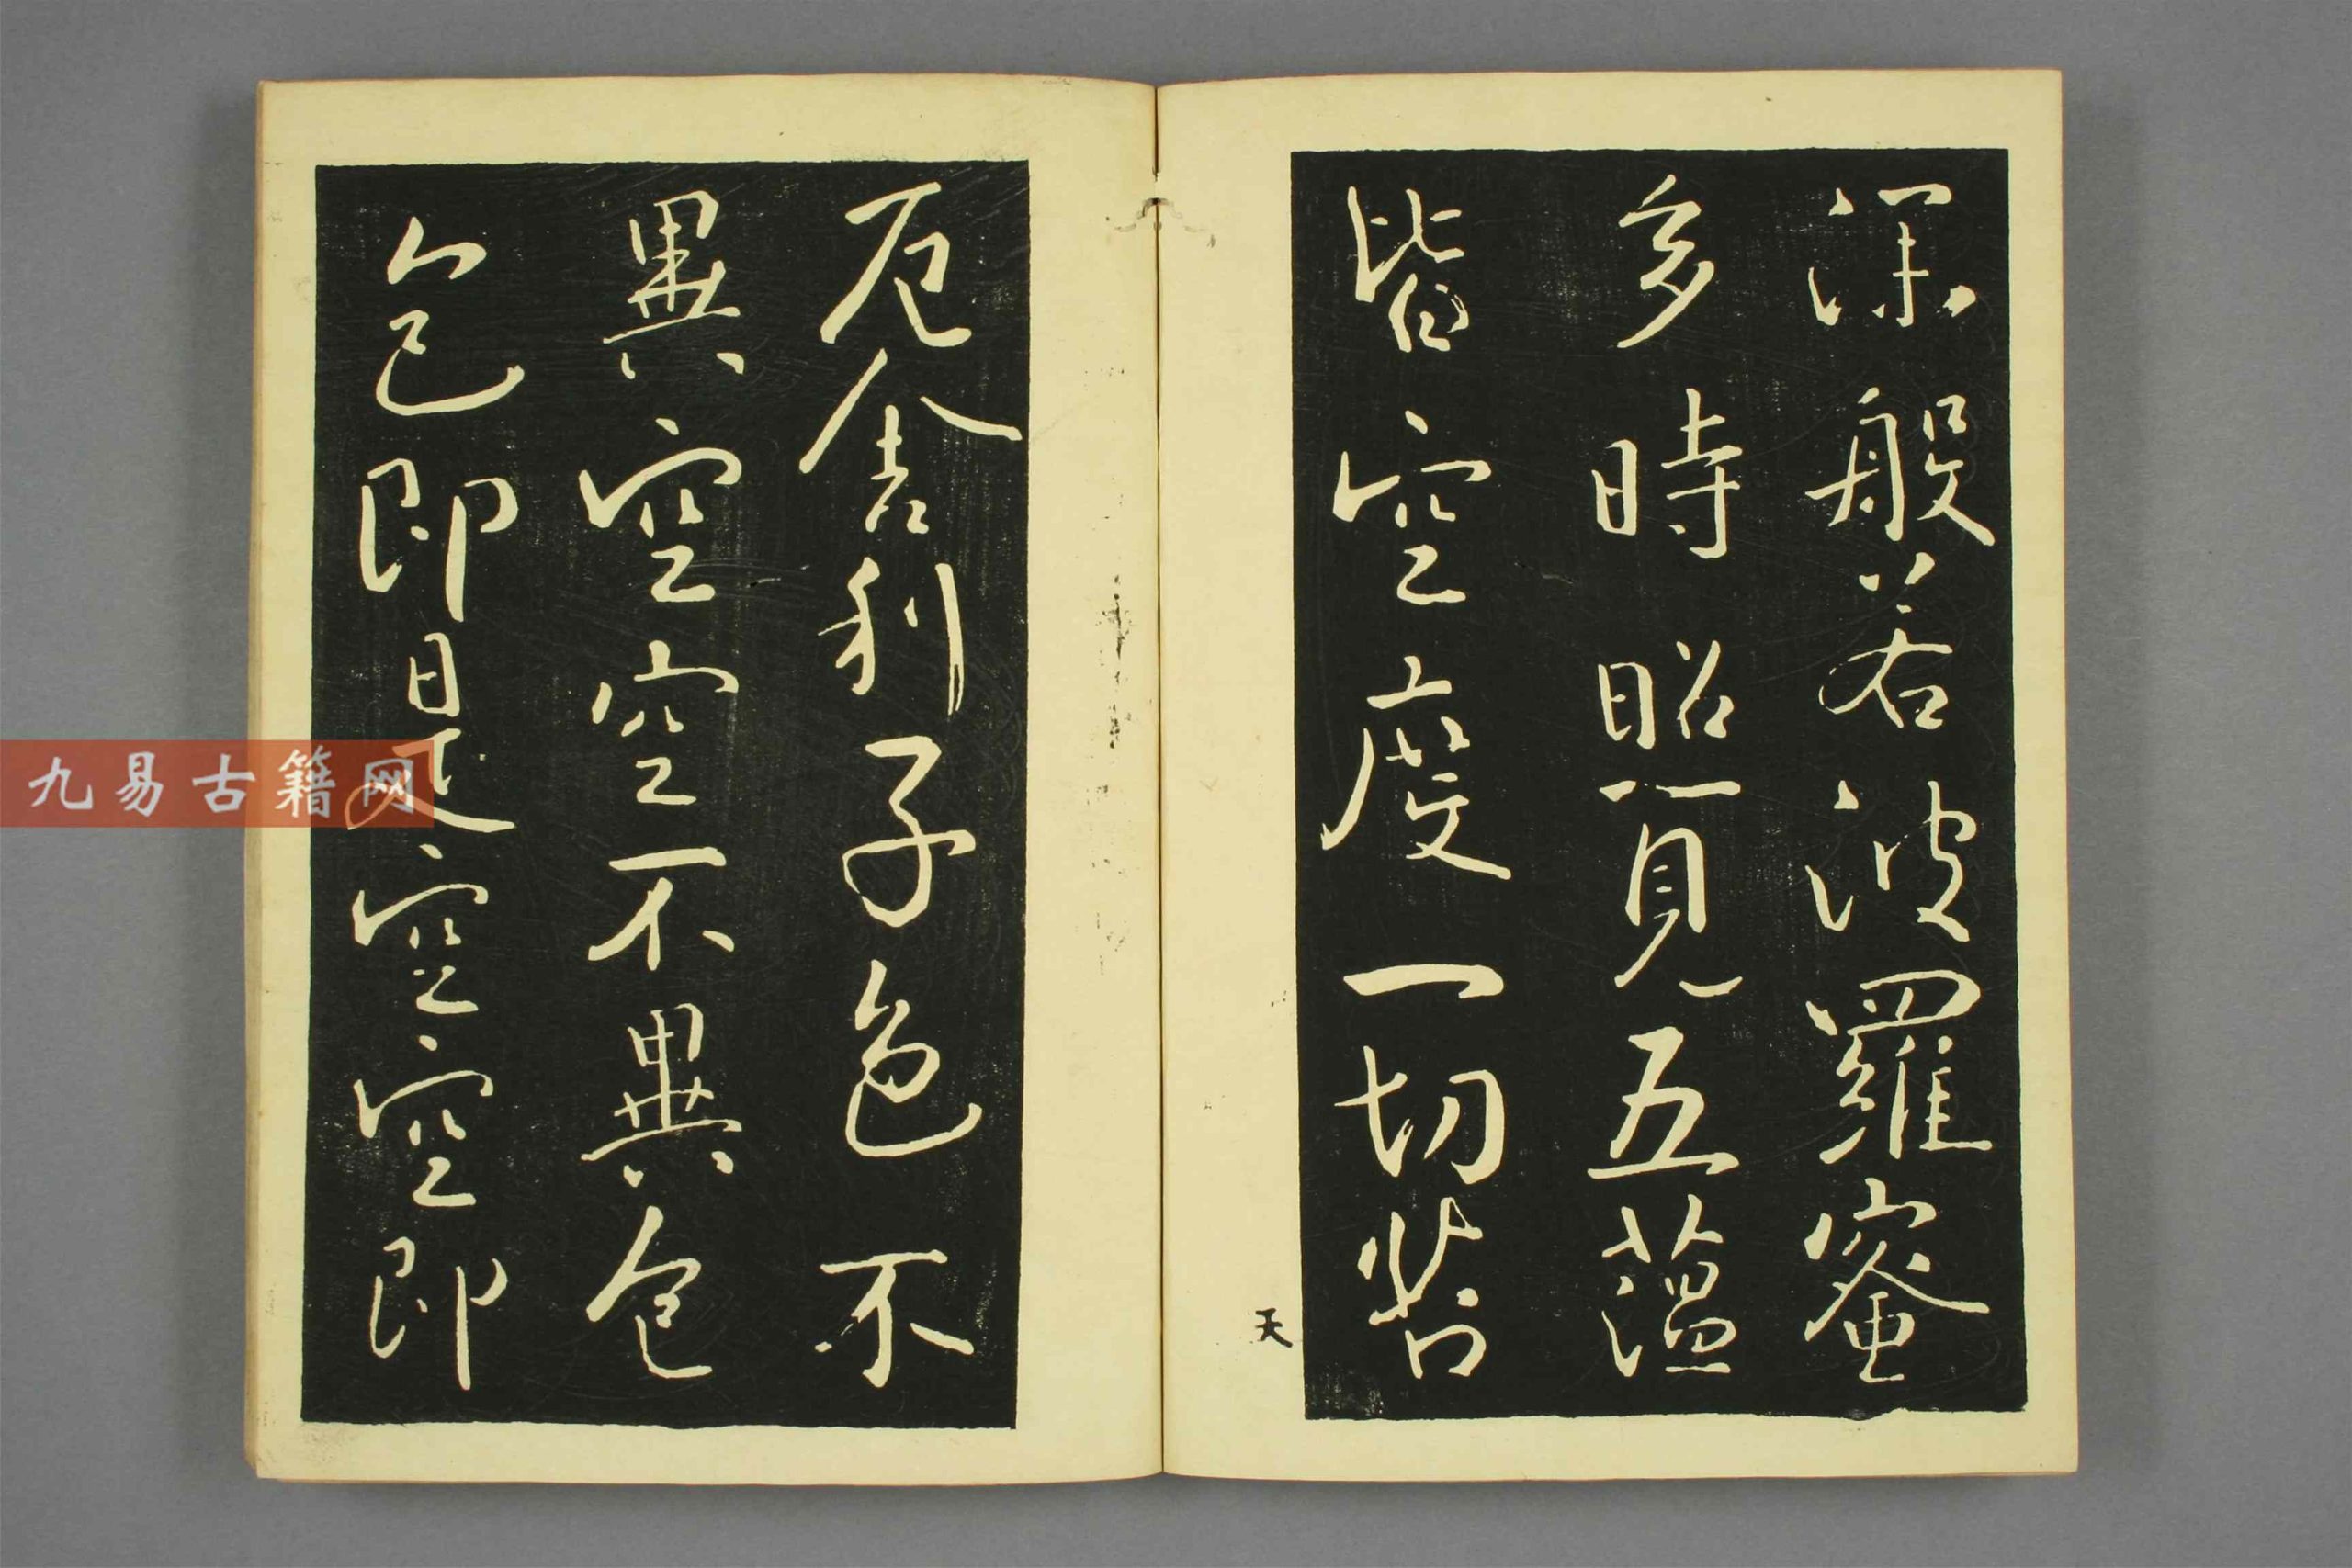 深般若波羅蜜
多時照見五蘊
皆空度一切苦
厄舍利子色不
異空空不異色
色即是空空即
天
九易古籍网